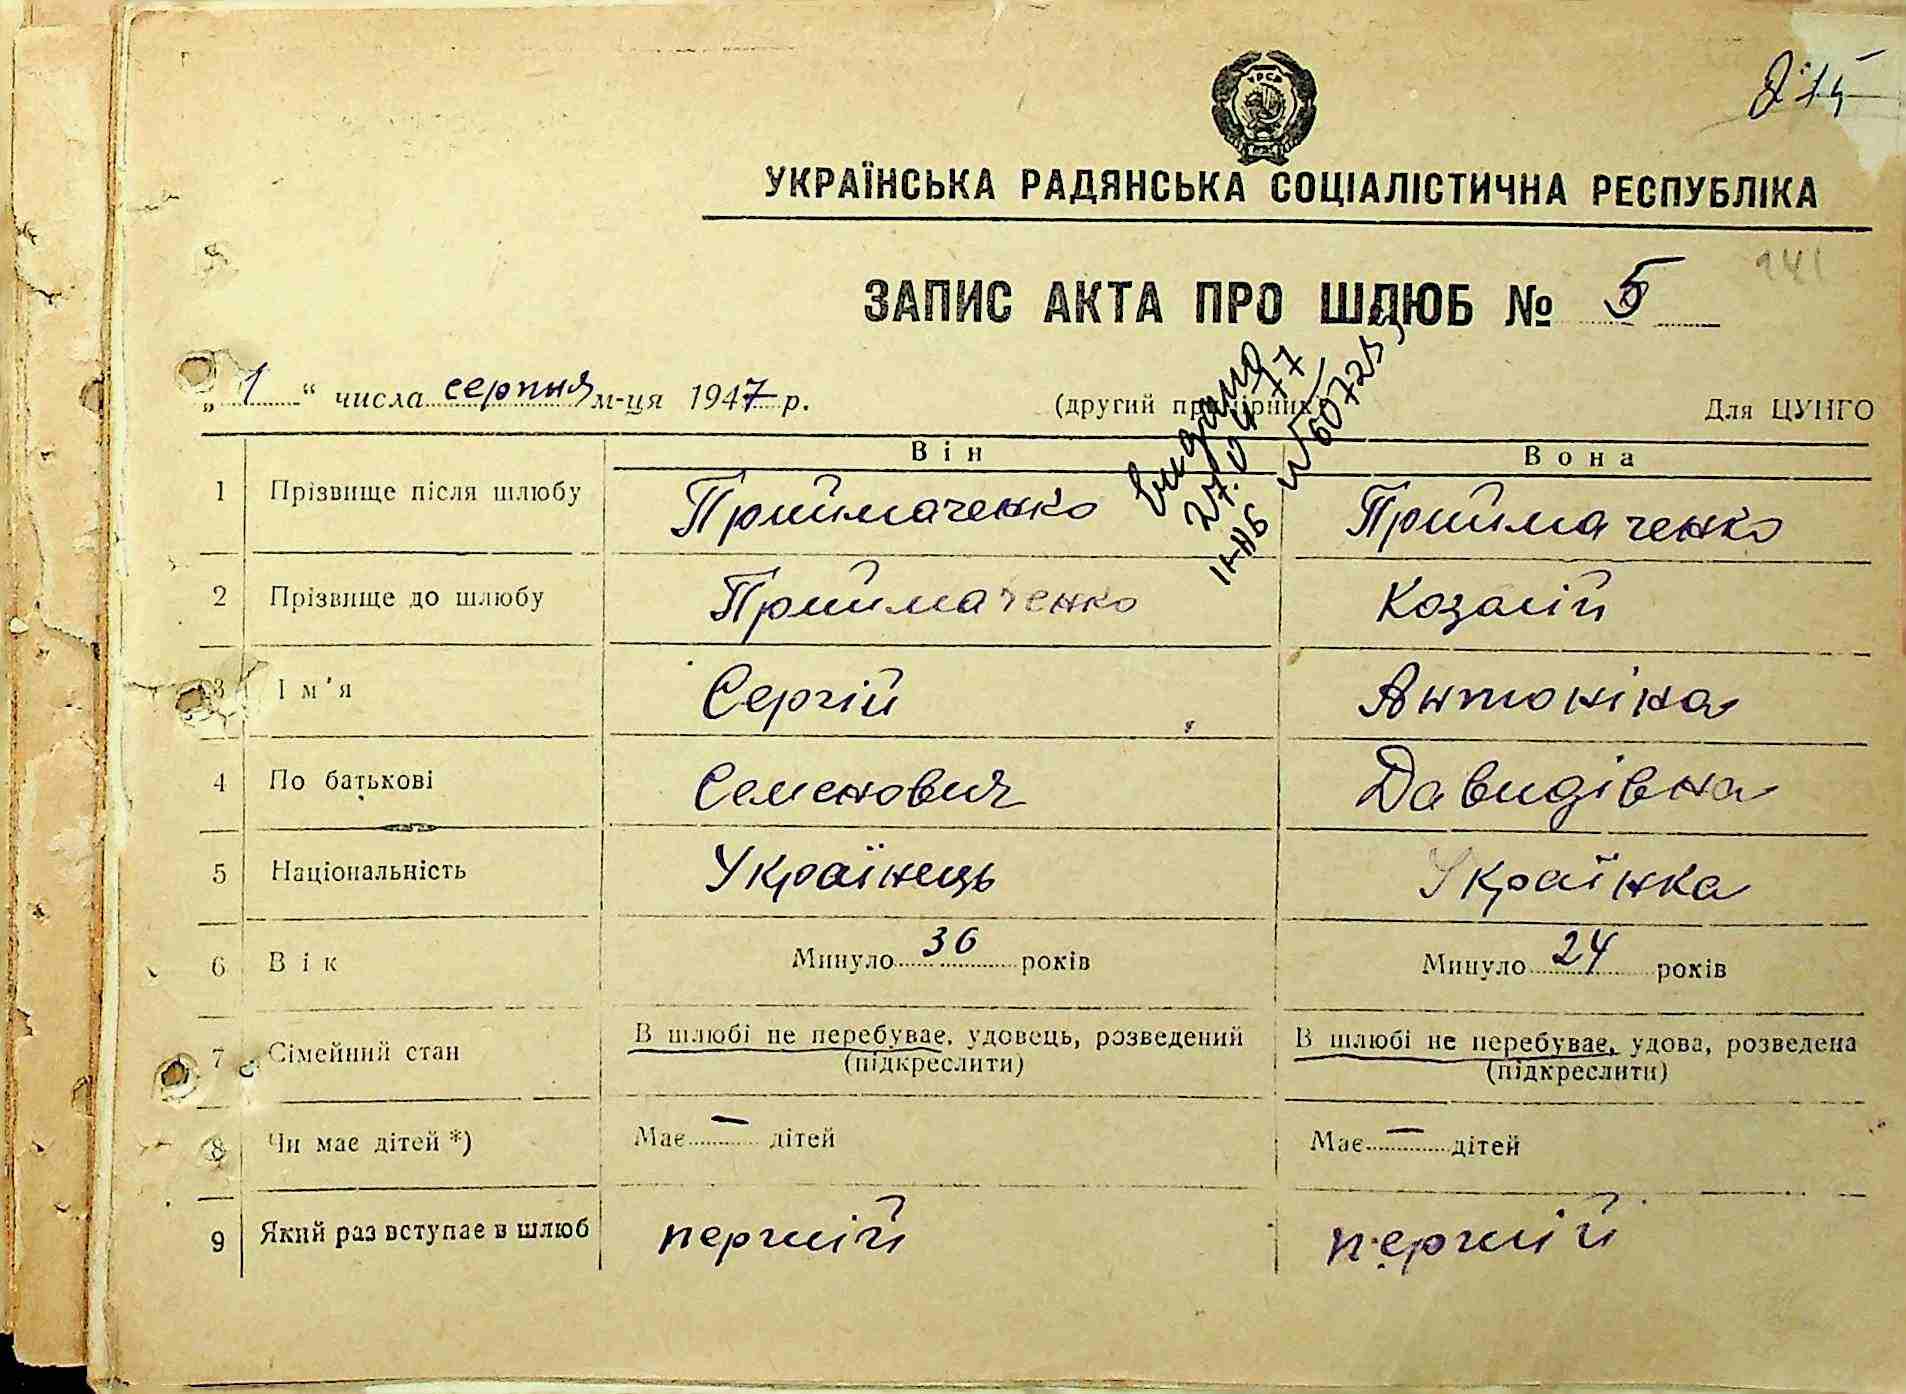 УРСР
215
УКРАЇНСЬКА РАДЯНСЬКА СОЦІАЛІСТИЧНА РЕСПУБЛІКА
941
ЗАПИС АКТА ПРО ШЛЮБ № 5
„1“ числа серпня м-ця 1947 р. (другий примірник) Для ЦУНГО
видано
27.04.77
II-НБ № 607253
Він Вона
1 Прізвище після шлюбу Приймаченко Приймаченко
2 Прізвище до шлюбу Приймаченко Козалій
3 Ім'я Сергій Антоніна
4 По батькові Семенович Давидівна
5 Національність Українець Українка
6 Вік Минуло 36 років Минуло 24 років
7 Сімейний стан В шлюбі не перебуває, удовець, розведений В шлюбі не перебуває, удова, розведена
(підкреслити) (підкреслити)
8 Чи має дітей *) Має — дітей Має — дітей
9 Який раз вступає в шлюб перший перший